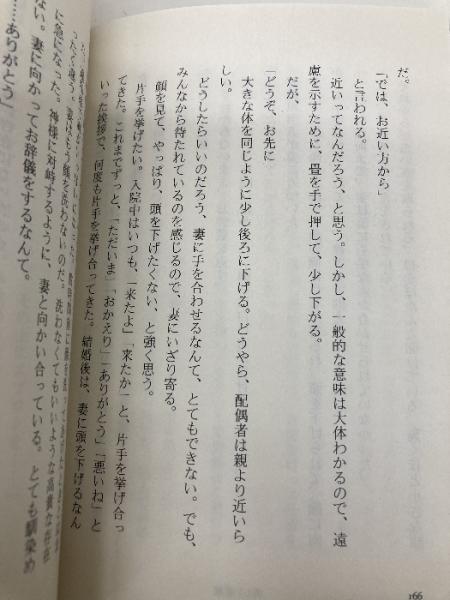 だ。
「では、お近い方から」
と言われる。
近いってなんだろう、と思う。しかし、一般的な意味は大体わかるので、遠
慮を示すために、畳を手で押して、少し下がる。
だが、
「どうぞ、お先に
大きな体を同じように少し後ろに下げる。どうやら、配偶者は親より近いら
しい。
どうしたらいいのだろう、妻に手を合わせるなんて、とてもできない。でも、
みんなから待たれているのを感じるので、妻にいざり寄る。
顔を見て、やっぱり、頭を下げたくない、と強く思う。
片手を挙げたい。入院中はいつも、「来たよ」「来たか」と、片手を挙げ合っ
てきた。これまでずっと、「ただいま」「おかえり」「ありがとう」「悪いね」と
いった挨拶で、何度も片手を挙げ合ってきた。結婚後は、妻に頭を下げるなん
妻はもう顔を洗わないのだ。洗わなくてもいいような高貴な存在
に急になった。神様に対峙するように、妻と向かい合っている。とても馴染め
ない。妻に向かってお辞儀をするなんて。
……ありがとう」
166